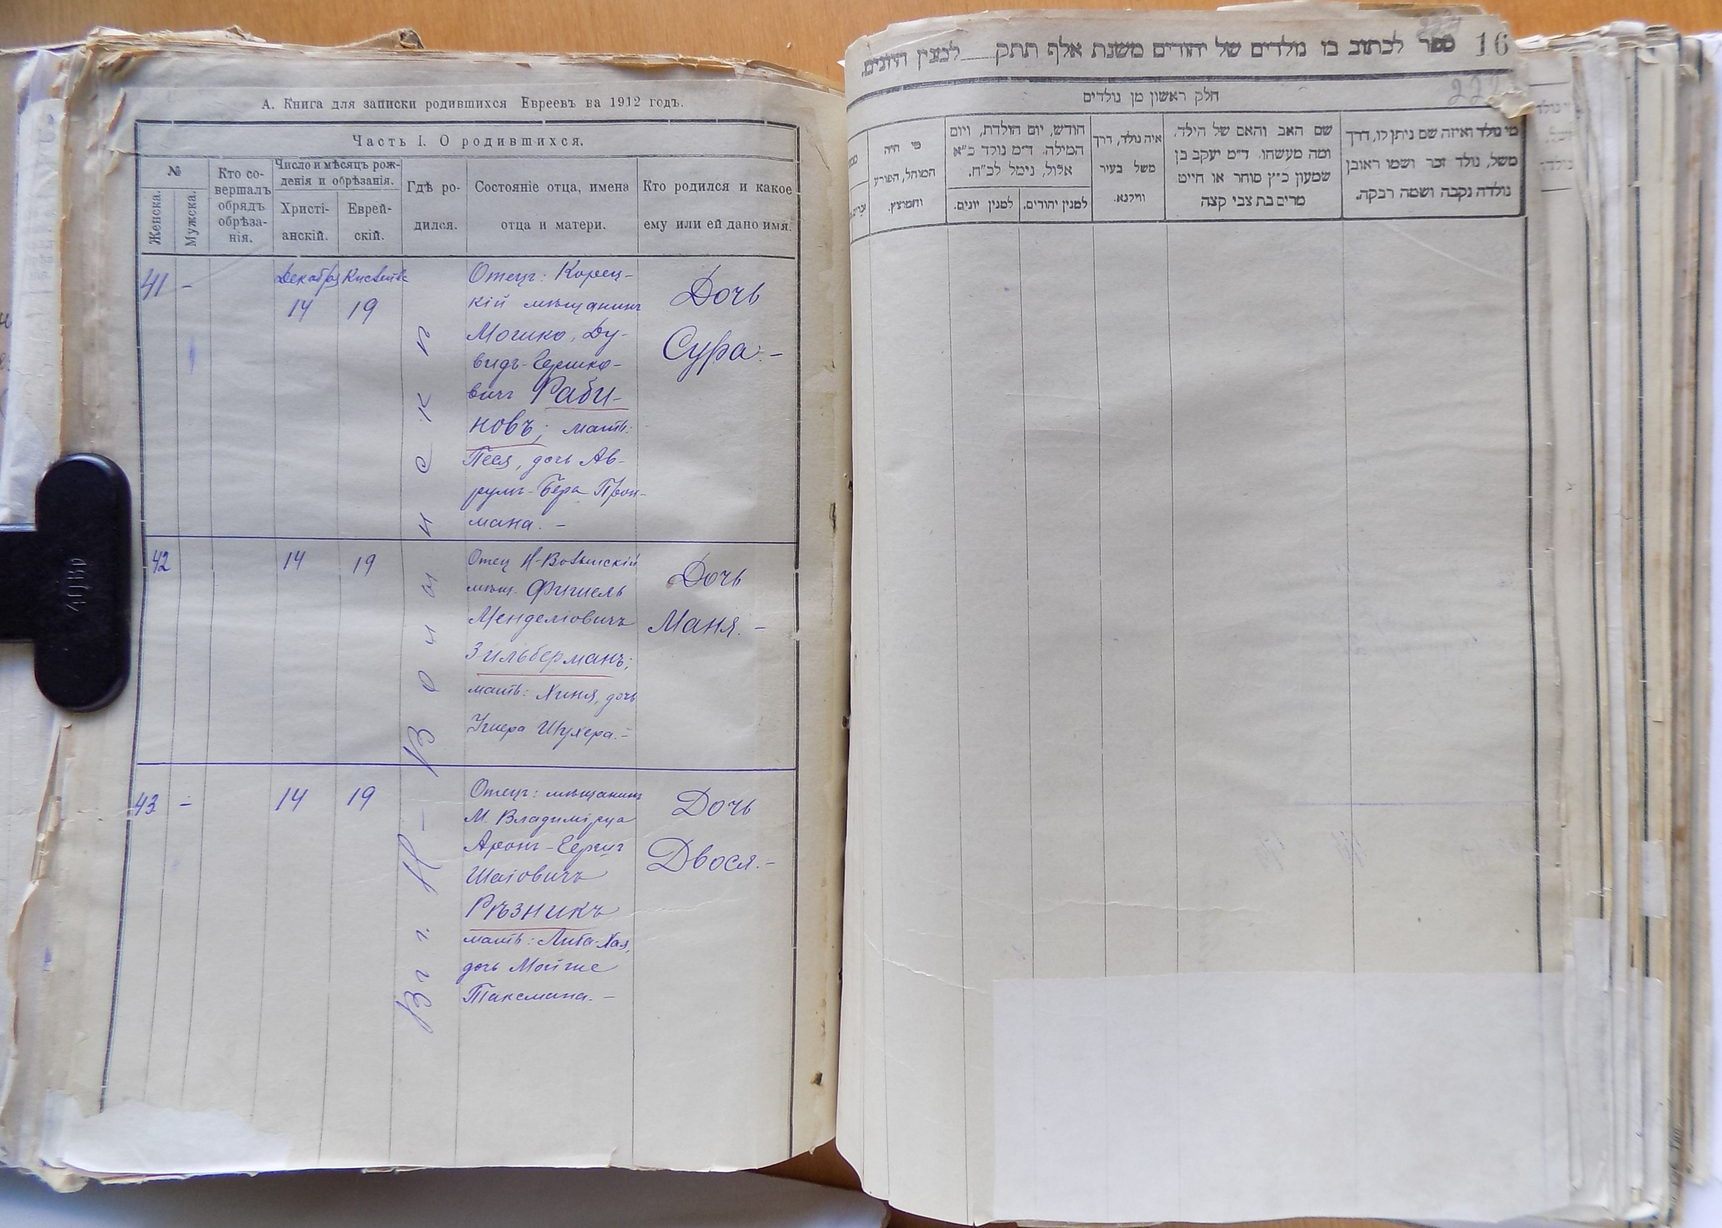 А. Книга для записки родившихся Евреевъ на 1912 годъ.
Часть I. О родившихся.
№
Женска.
Мужска.
Кто со-
вершалъ
обрядъ
обрѣза-
нія.
Число и мѣсяцъ рож-
денія и обрѣзанія.
Христі-
анскій.
Еврей-
скій.
Гдѣ ро-
дился.
Состояніе отца, имена
отца и матери.
Кто родился и какое
ему или ей дано имя.
41 -
Декабря
14
19
Отецъ: Корец-
кій мѣщанинъ
Мошко, Ду-
видъ-Гершко-
вичъ Раби-
новъ; мать:
Песя, дочь Ав-
румъ-Бера
мана. -
Дочь
Сура. -
42
14
19
Отец Н-Волынскій
мѣщ. Фишель
Менделіовичъ
Зильберманъ;
мать: Хиня, дочь
Дочь
Маня. -
43 -
14
19
Отецъ: мѣщанинъ
М. Владимірца
Аронъ-Гершъ
Шаіовичъ
Рѣзникъ
мать: Хая,
дочь
Таксмана. -
Дочь
Двося. -
Вг г. Н-Волинскп
ספר לכתוב בו נולדים של יהודים משנת אלף תתק
16
חלק ראשון מן נולדים
מי נולד ואיזה שם ניתן לו, דרך
משל, נולד זכר ושמו ראובן
נולדה נקבה ושמה רבקה.
שם האב והאם של הילד,
ומה מעשהו ד״מ יעקב בן
שמעון כ״ץ סוחר או חייט
מרים בת צבי קצה
איה נולד, דרך
משל בעיר
ווילנא.
חודש, יום הולדת, ויום
המילה ד״מ נולד כ״א
אלול, נימל לכ״ח.
למנין יהודים.
למנין יונים.
מי היה
המוהל, הפורע
והמוצץ.